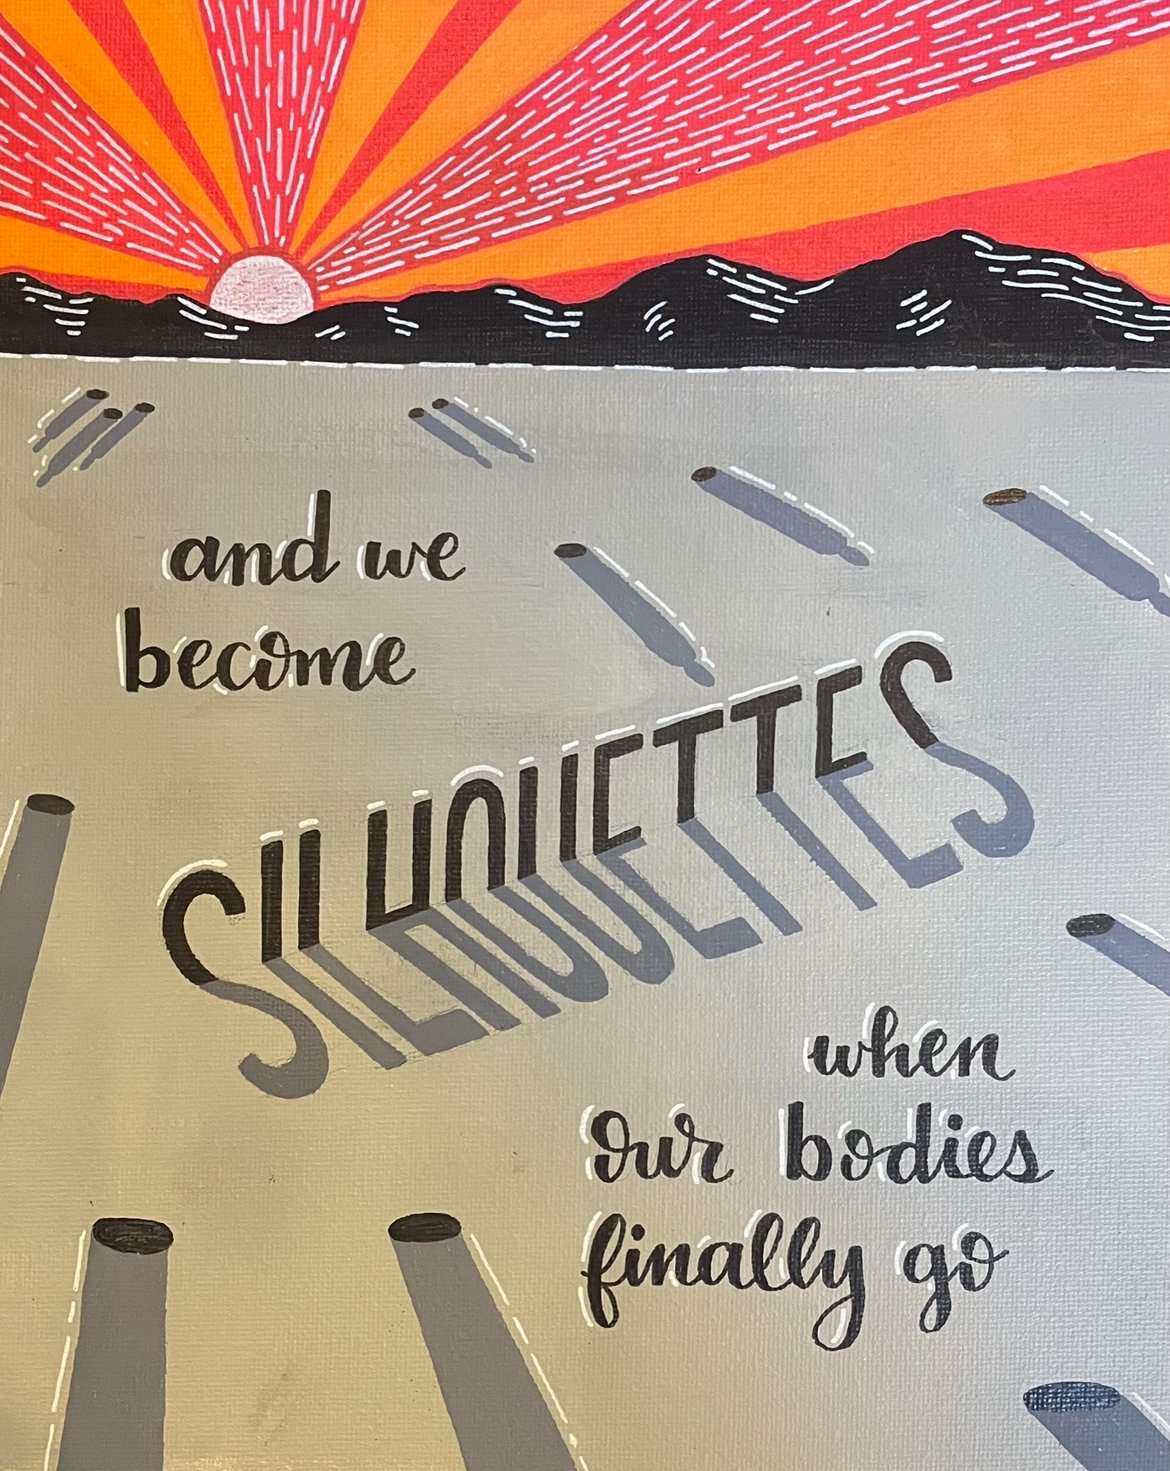 and we
become
SILHOUETTES
when
our bodies
finally go